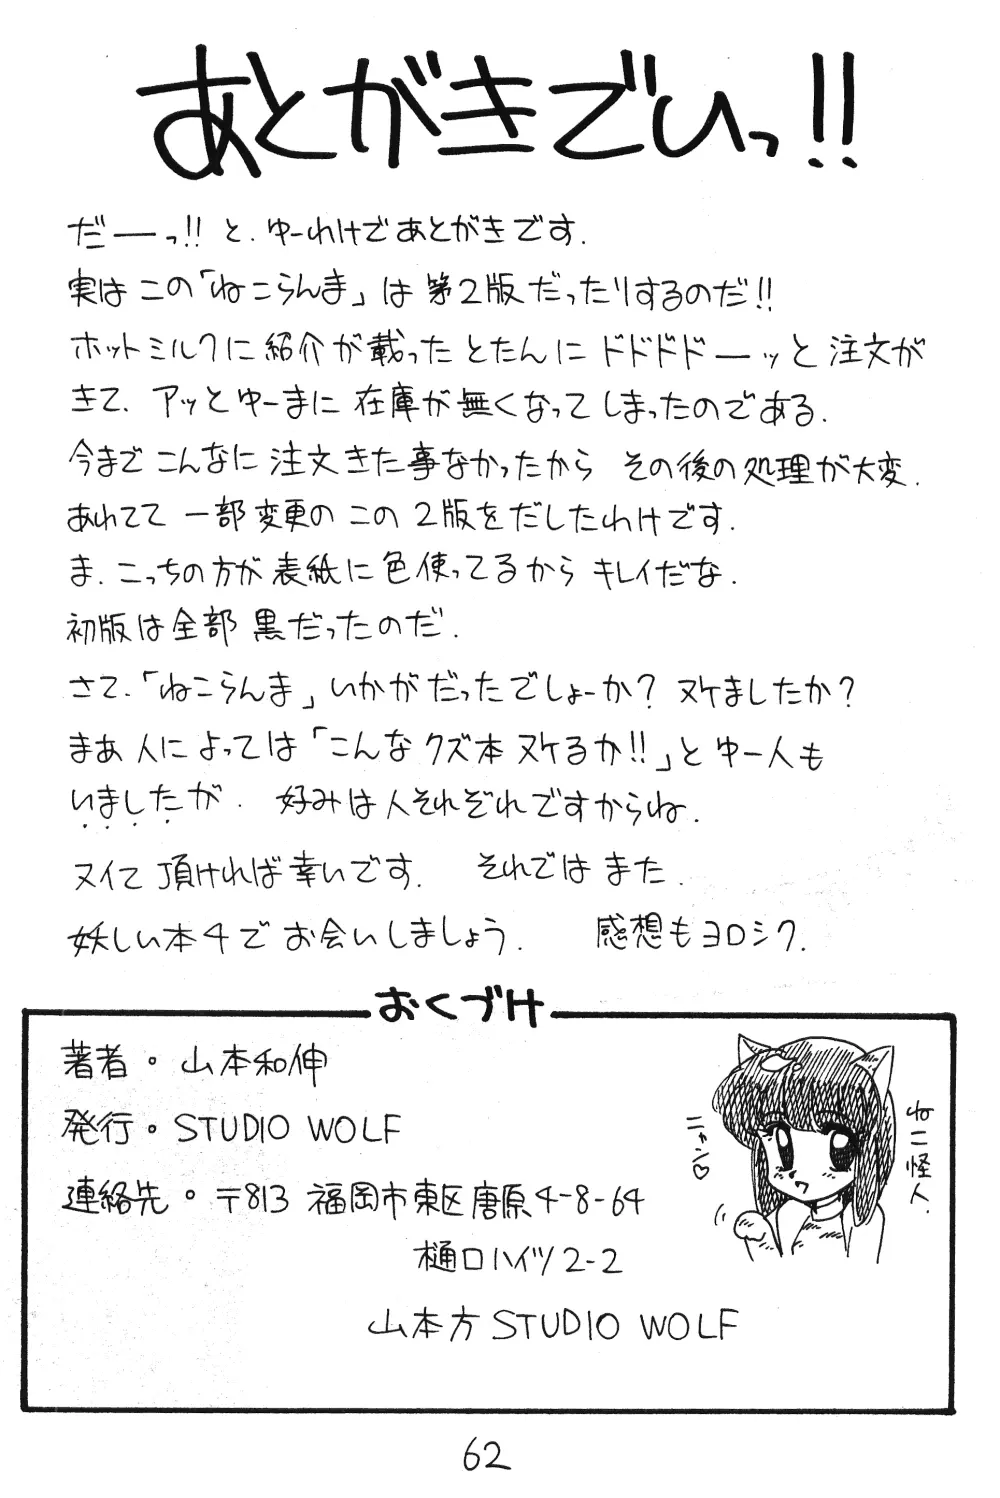 あとがきでいっ!!
だーっ!! と、ゆーわけであとがきです.
実はこの「ねこらんま」は第2版だったりするのだ!!
ホットミルクに紹介が載ったとたんにドドドドーッと注文が
きて、アッとゆーまに在庫が無くなってしまったのである.
今までこんなに注文きた事なかったからその後の処理が大変.
あわてて一部変更のこの2版をだしたわけです.
ま、こっちの方が表紙に色使ってるからキレイだな.
初版は全部黒だったのだ.
さて、「ねこらんま」いかがだったでしょーか? ヌケましたか?
まあ人によっては「こんなクズ本ヌケるか!!」とゆー人も
いましたが、好みは人それぞれですからね.
ヌイて頂ければ幸いです. それではまた.
妖しい本4でお会いしましょう. 感想もヨロシク.
おくづけ
著者・山本和伸
発行・STUDIO WOLF
連絡先・〒813 福岡市東区唐原4-8-64
樋口ハイツ2-2
山本方 STUDIO WOLF
ニャン♡
ねこ怪人.
62